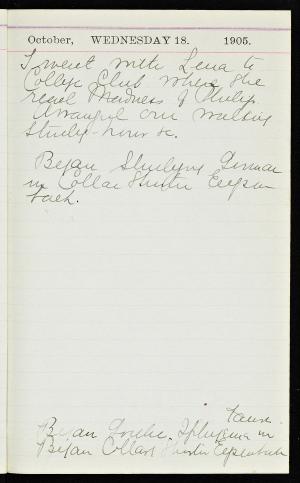 October, WEDNESDAY 18. 1905.
I went with Lena to
College Club where she
read Madness of Philip
Arranged our walking
Study-hour &c.
Began Studying German
in Collar Eysen
bach.
Began Goethe. Iphigenia in Tauris.
Began Collar's Eysenbach